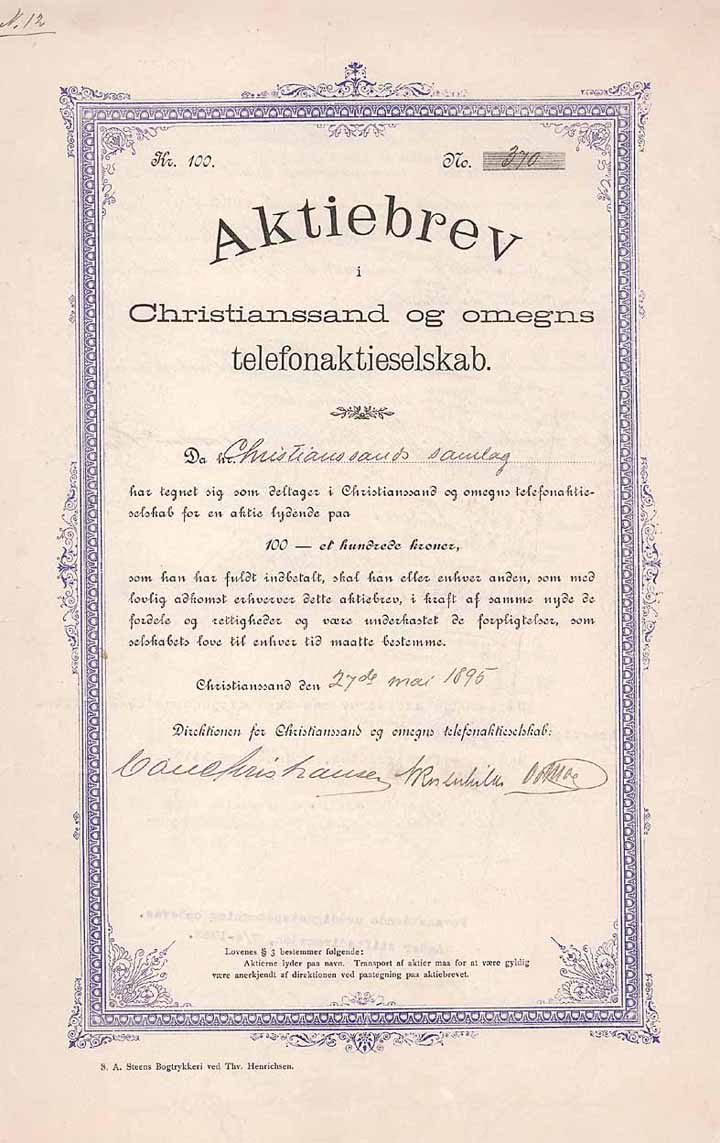 N. 12
Kr. 100.
No. 370
Aktiebrev
i
Christianssand og omegns
telefonaktieselskab.
Da hr. Christianssands samlag
har tegnet sig som deltager i Christianssand og omegns telefonaktie-
selskab for en aktie lydende paa
100 — et hundrede kroner,
som han har fuldt indbetalt, skal han eller enhver anden, som med
lovlig adkomst erhverver dette aktiebrev, i kraft af samme nyde de
fordele og rettigheder og være underkastet de forpligtelser, som
selskabets love til enhver tid maatte bestemme.
Christianssand den 27de mai 1895
Direktionen for Christianssand og omegns telefonaktieselskab:
Christiansen
Lovenes § 3 bestemmer følgende:
Aktierne lyder paa navn. Transport af aktier maa for at være gyldig
være anerkjendt af direktionen ved paategning paa aktiebrevet.
S. A. Steens Bogtrykkeri ved Thv. Henrichsen.